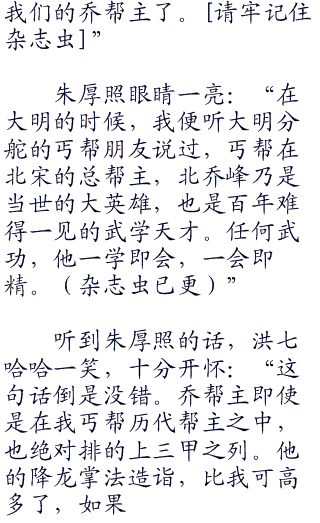 我们的乔帮主了。[请牢记住
杂志虫]”
朱厚照眼睛一亮：“在
大明的时候，我便听大明分
舵的丐帮朋友说过，丐帮在
北宋的总帮主，北乔峰乃是
当世的大英雄，也是百年难
得一见的武学天才。任何武
功，他一学即会，一会即
精。（杂志虫已更）”
听到朱厚照的话，洪七
哈哈一笑，十分开怀：“这
句话倒是没错。乔帮主即使
是在我丐帮历代帮主之中，
也绝对排的上三甲之列。他
的降龙掌法造诣，比我可高
多了，如果